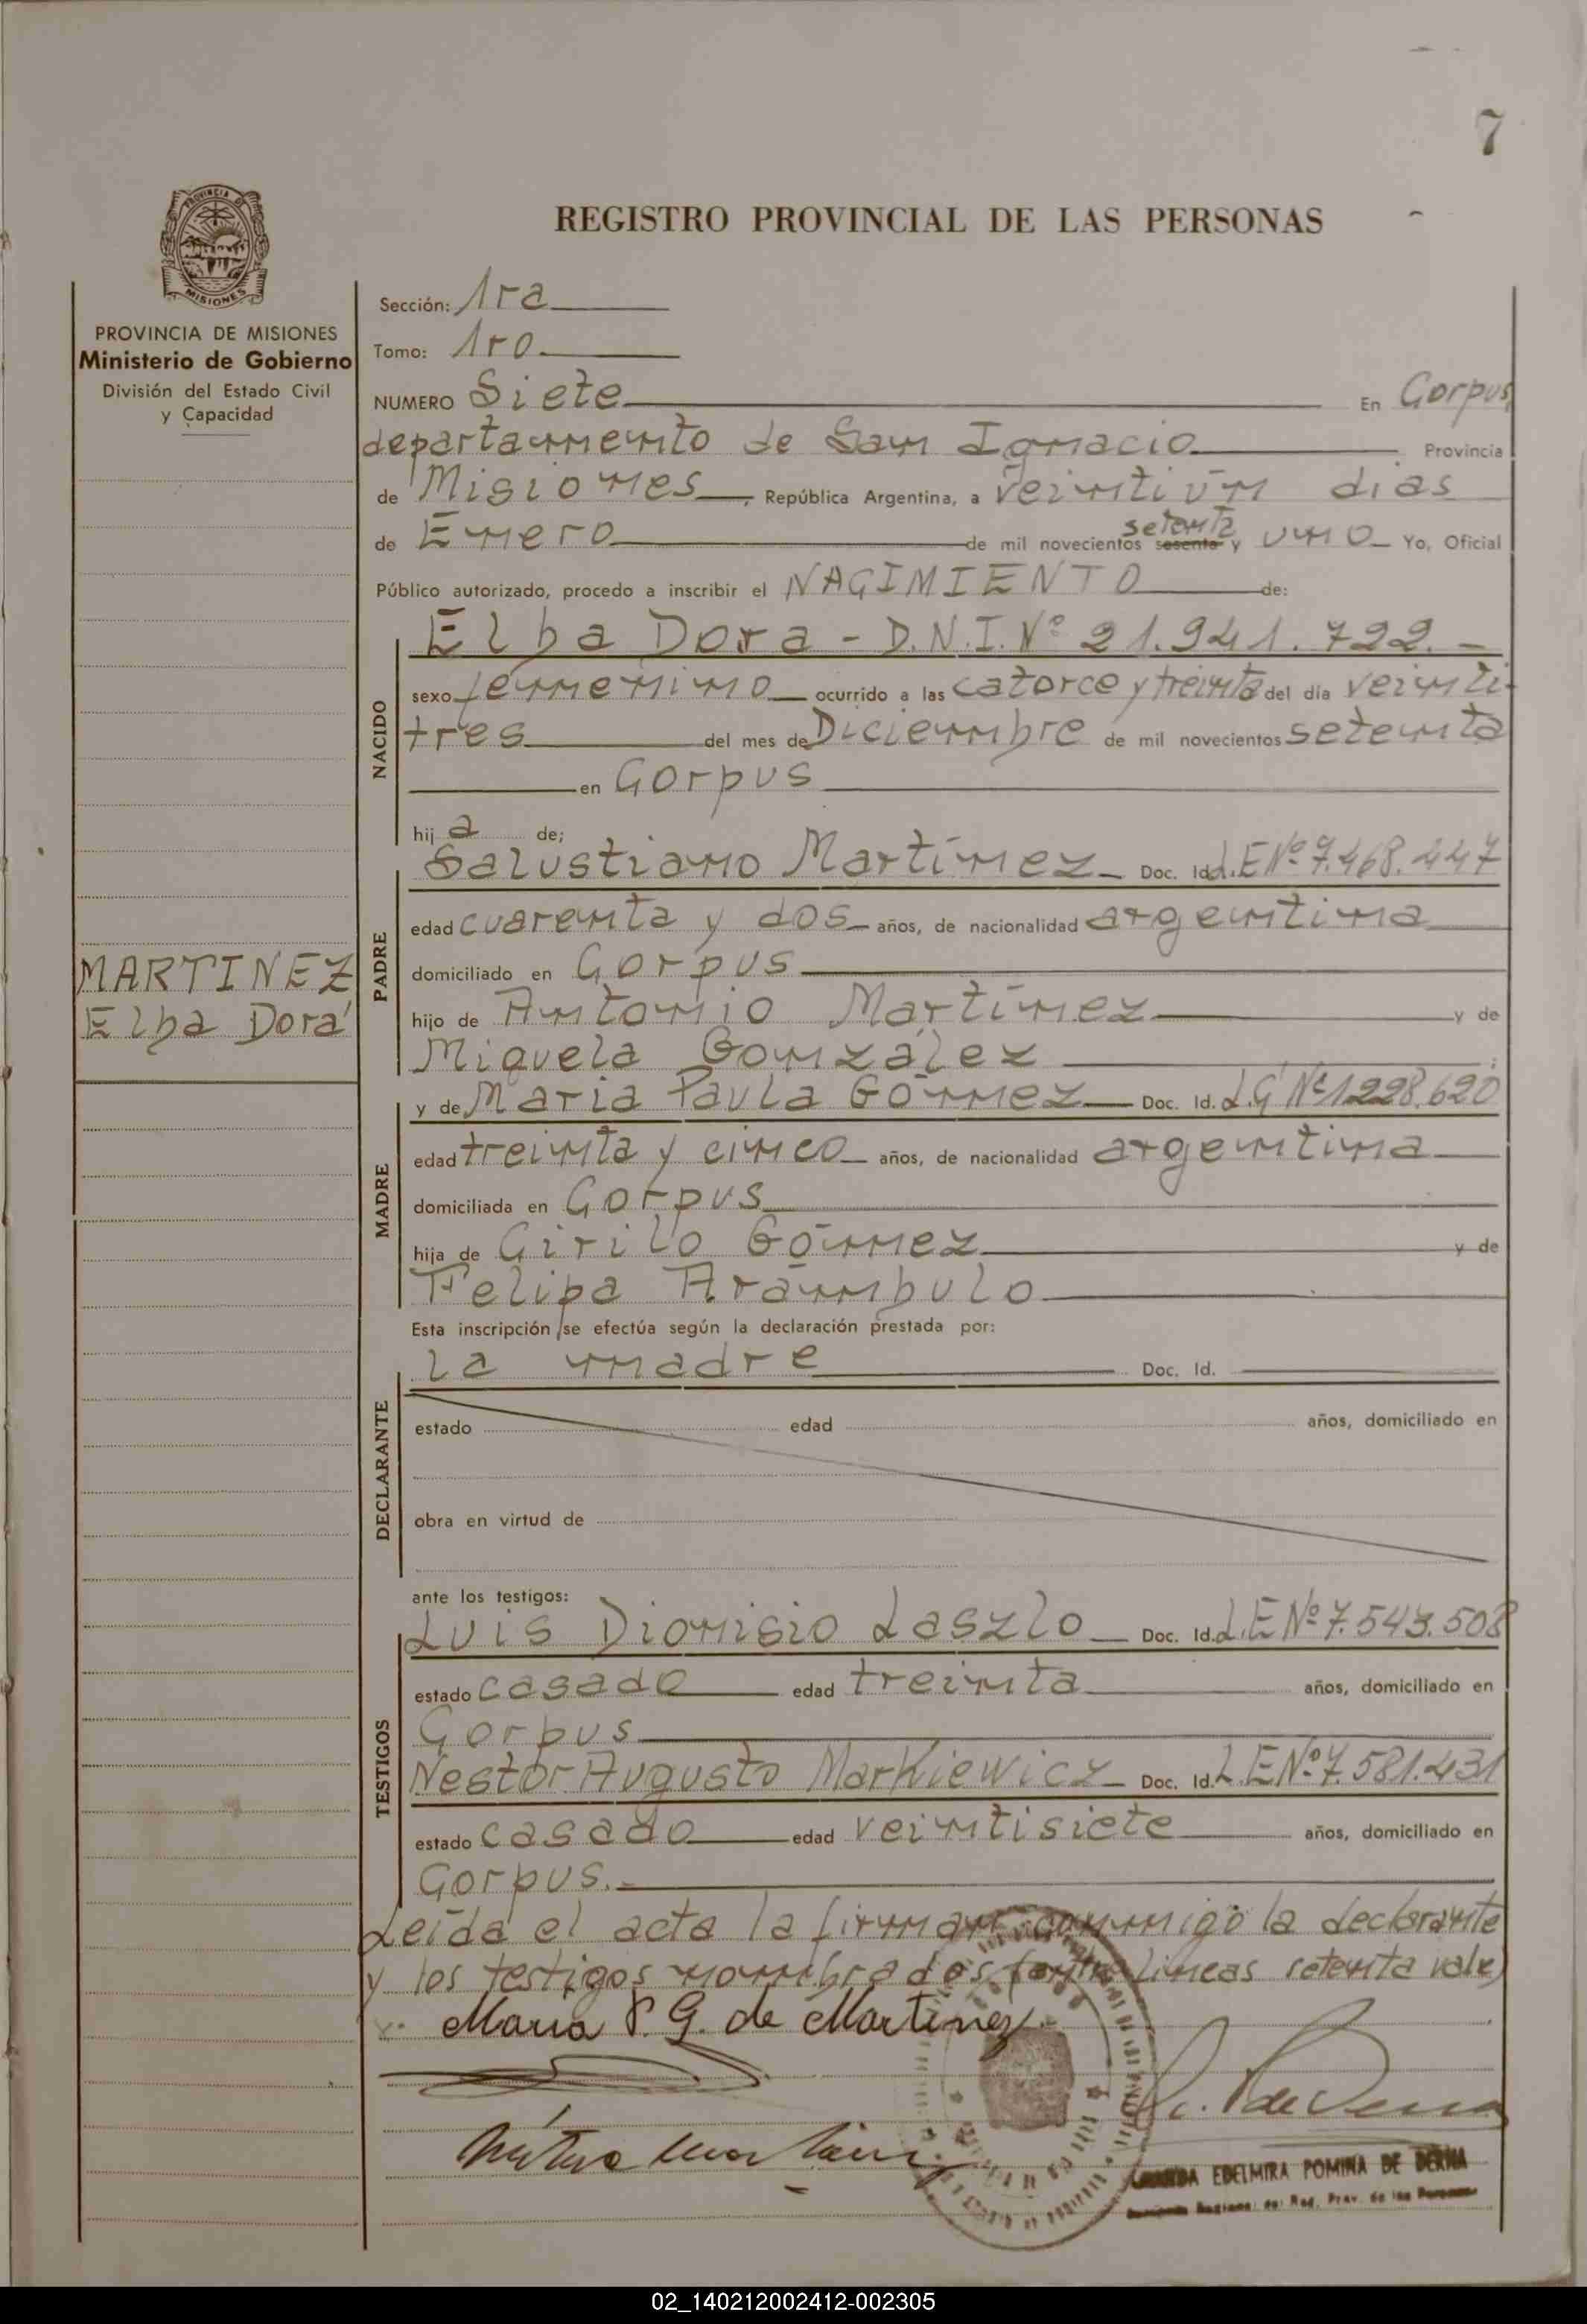 7
REGISTRO PROVINCIAL DE LAS PERSONAS
PROVINCIA DE MISIONES
Ministerio de Gobierno
División del Estado Civil
y Capacidad
MARTINEZ
Elba Dora
Sección: 1ra
Tomo: 1ro
NUMERO Siete En Corpus,
departamento de San Ignacio Provincia
de Misiones, República Argentina, a veintiún dias
de Enero de mil novecientos sesenta setenta y uno Yo, Oficial
Público autorizado, procedo a inscribir el NACIMIENTO de:
NACIDO
Elba Dora - D.N.I. Nº 21.941.722.-
sexo femenino ocurrido a las catorce y treinta del día veinti-
tres del mes de Diciembre de mil novecientos setenta
en Corpus
hij a de;
PADRE
Salustiano Martínez Doc. Id. L.E Nº 7.468.447
edad cuarenta y dos años, de nacionalidad argentina
domiciliado en Corpus
hijo de Antonio Martínez y de
Miguela González
MADRE
y de Maria Paula Gómez Doc. Id. L.C Nº 1.228.620
edad treinta y cinco años, de nacionalidad argentina
domiciliada en Corpus
hija de Cirilo Gómez y de
Felipa Arámbulo
Esta inscripción se efectúa según la declaración prestada por:
DECLARANTE
la madre Doc. Id.
estado edad años, domiciliado en
obra en virtud de
ante los testigos:
TESTIGOS
Luis Dionisio Laszlo Doc. Id. L.E Nº 7.543.508
estado casado edad treinta años, domiciliado en
Corpus
Nestor Augusto Markiewicz Doc. Id. L.E Nº 7.581.431
estado casado edad veintisiete años, domiciliado en
Corpus.-
Leída el acta la firman conmigo la declarante
y los testigos nombrados (entre lineas setenta vale)
Maria P. G. de Martinez
EDELMIRA POMINA DE BERNA
02_140212002412-002305